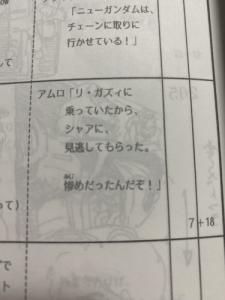 「ニューガンダムは、
チェーンに取りに
行かせている！」
して
アムロ「リ・ガズィに
乗っていたから、
シャアに、
見逃してもらった。
惨めだったんだぞ！」
みじ
って）
7+18
で
ト